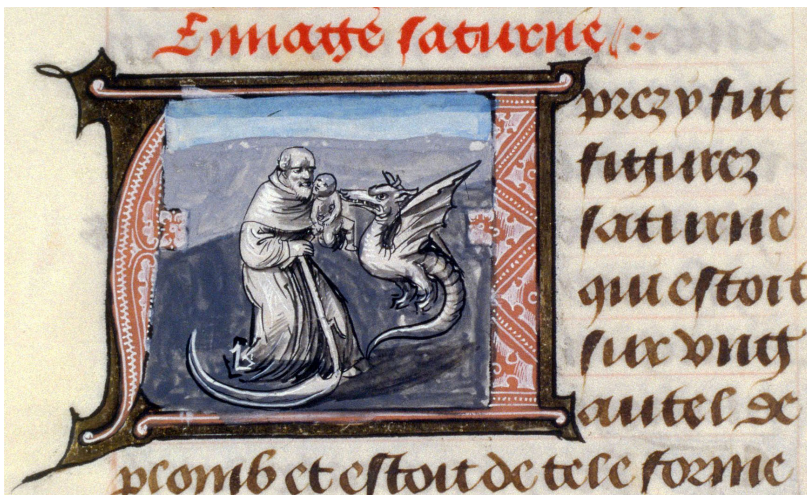 Ennage saturne
Aprez y fut
figurez
saturne
qui estoit
sur ung
autel de
plomb et estoit de tele forme